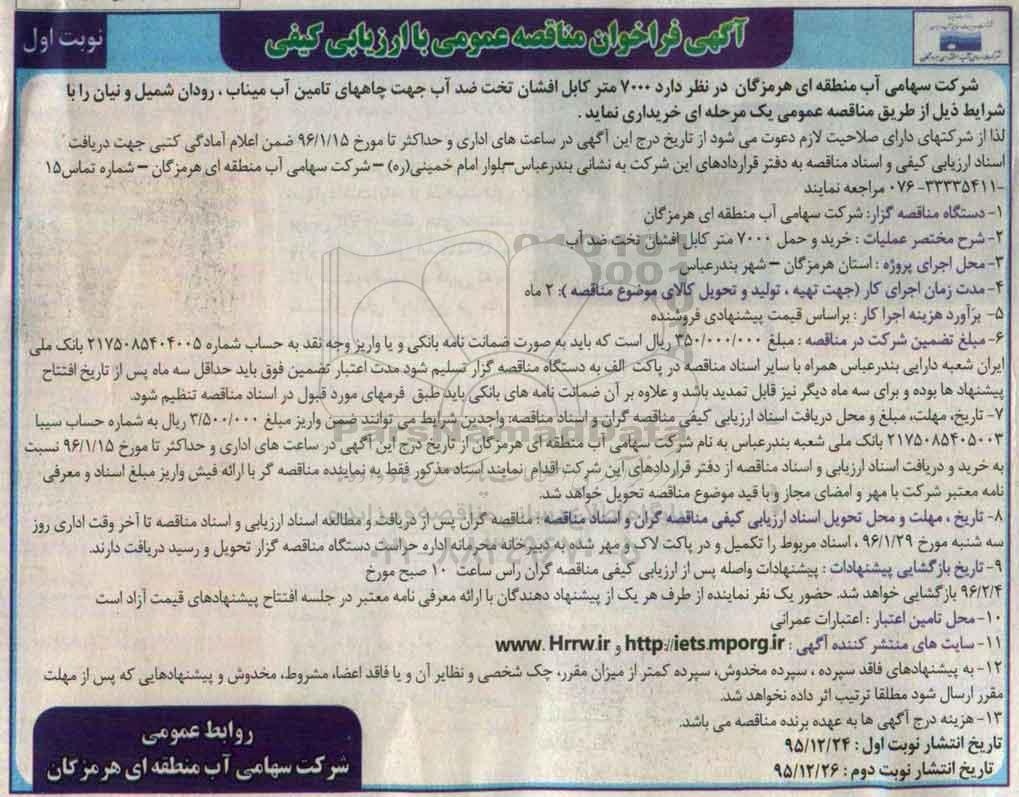 آگهی فراخوان مناقصه عمومی با ارزیابی کیفی
نوبت اول
شرکت سهامی آب منطقه ای هرمزگان در نظر دارد ۷۰۰۰ متر کابل افشان تخت ضد آب جهت چاههای تامین آب میناب ، رودان شمیل و نیان را با
شرایط ذیل از طریق مناقصه عمومی یک مرحله ای خریداری نماید .
لذا از شرکتهای دارای صلاحیت لازم دعوت می شود از تاریخ درج این آگهی در ساعت های اداری و حداکثر تا مورخ ۹۶/۱/۱۵ ضمن اعلام آمادگی کتبی جهت دریافت
اسناد ارزیابی کیفی و اسناد مناقصه به دفتر قراردادهای این شرکت به نشانی بندرعباس–بلوار امام خمینی(ره) – شرکت سهامی آب منطقه ای هرمزگان – شماره تماس۱۵
-۳۳۳۳۵۴۱۱- ۰۷۶ مراجعه نمایند
۱- دستگاه مناقصه گزار: شرکت سهامی آب منطقه ای هرمزگان
۲- شرح مختصر عملیات : خرید و حمل ۷۰۰۰ متر کابل افشان تخت ضد آب
۳- محل اجرای پروژه : استان هرمزگان – شهر بندرعباس
۴- مدت زمان اجرای کار (جهت تهیه ، تولید و تحویل کالای موضوع مناقصه ): ۲ ماه
۵- برآورد هزینه اجرا کار : براساس قیمت پیشنهادی فروشنده
۶- مبلغ تضمین شرکت در مناقصه : مبلغ ۳۵۰/۰۰۰/۰۰۰ ریال است که باید به صورت ضمانت نامه بانکی و یا واریز وجه نقد به حساب شماره ۲۱۷۵۰۸۵۴۰۴۰۰۵ بانک ملی
ایران شعبه دارایی بندرعباس همراه با سایر اسناد مناقصه در پاکت الف به دستگاه مناقصه گزار تسلیم شود.مدت اعتبار تضمین فوق باید حداقل سه ماه پس از تاریخ افتتاح
پیشنهاد ها بوده و برای سه ماه دیگر نیز قابل تمدید باشد و علاوه بر آن ضمانت نامه های بانکی باید طبق فرمهای مورد قبول در اسناد مناقصه تنظیم شود.
۷- تاریخ، مهلت، مبلغ و محل دریافت اسناد ارزیابی کیفی مناقصه گران و اسناد مناقصه: واجدین شرایط می توانند ضمن واریز مبلغ ۳/۵۰۰/۰۰۰ ریال به شماره حساب سیبا
۲۱۷۵۰۸۵۴۰۵۰۰۳ بانک ملی شعبه بندرعباس به نام شرکت سهامی آب منطقه ای هرمزگان از تاریخ درج این آگهی در ساعت های اداری و حداکثر تا مورخ ۹۶/۱/۱۵ نسبت
به خرید و دریافت اسناد ارزیابی و اسناد مناقصه از دفتر قراردادهای این شرکت اقدام نمایند اسناد مذکور فقط به نماینده مناقصه گر با ارائه فیش واریز مبلغ اسناد و معرفی
نامه معتبر شرکت با مهر و امضای مجاز و با قید موضوع مناقصه تحویل خواهد شد.
۸- تاریخ ، مهلت و محل تحویل اسناد ارزیابی کیفی مناقصه گران و اسناد مناقصه : مناقصه گران پس از دریافت و مطالعه اسناد ارزیابی و اسناد مناقصه تا آخر وقت اداری روز
سه شنبه مورخ ۹۶/۱/۲۹ ، اسناد مربوط را تکمیل و در پاکت لاک و مهر شده به دبیرخانه محرمانه اداره حراست دستگاه مناقصه گزار تحویل و رسید دریافت دارند.
۹- تاریخ بازگشایی پیشنهادات : پیشنهادات واصله پس از ارزیابی کیفی مناقصه گران راس ساعت ۱۰ صبح مورخ
۹۶/۲/۴ بازگشایی خواهد شد. حضور یک نفر نماینده از طرف هر یک از پیشنهاد دهندگان با ارائه معرفی نامه معتبر در جلسه افتتاح پیشنهادهای قیمت آزاد است
۱۰- محل تامین اعتبار : اعتبارات عمرانی
۱۱- سایت های منتشر کننده آگهی : http://iets.mporg.ir و www. Hrrw.ir
۱۲- به پیشنهادهای فاقد سپرده ، سپرده مخدوش، سپرده کمتر از میزان مقرر، چک شخصی و نظایر آن و یا فاقد اعضا، مشروط، مخدوش و پیشنهادهایی که پس از مهلت
مقرر ارسال شود مطلقا ترتیب اثر داده نخواهد شد.
۱۳- هزینه درج آگهی ها به عهده برنده مناقصه می باشد.
تاریخ انتشار نوبت اول : ۹۵/۱۲/۲۴
تاریخ انتشار نوبت دوم : ۹۵/۱۲/۲۶
روابط عمومی
شرکت سهامی آب منطقه ای هرمزگان